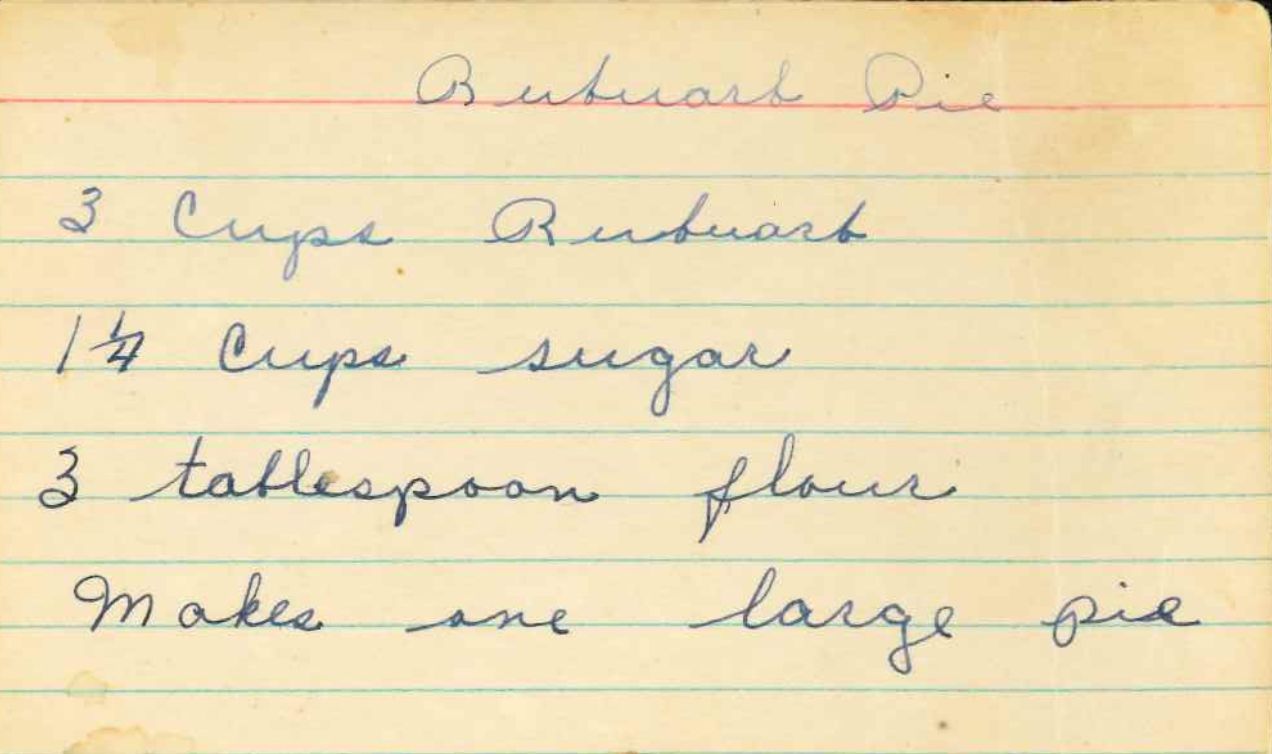 Rubuarb Pie
3 Cups Rubuarb
1 1/4 Cups sugar
3 tablespoon flour
Makes one large pie